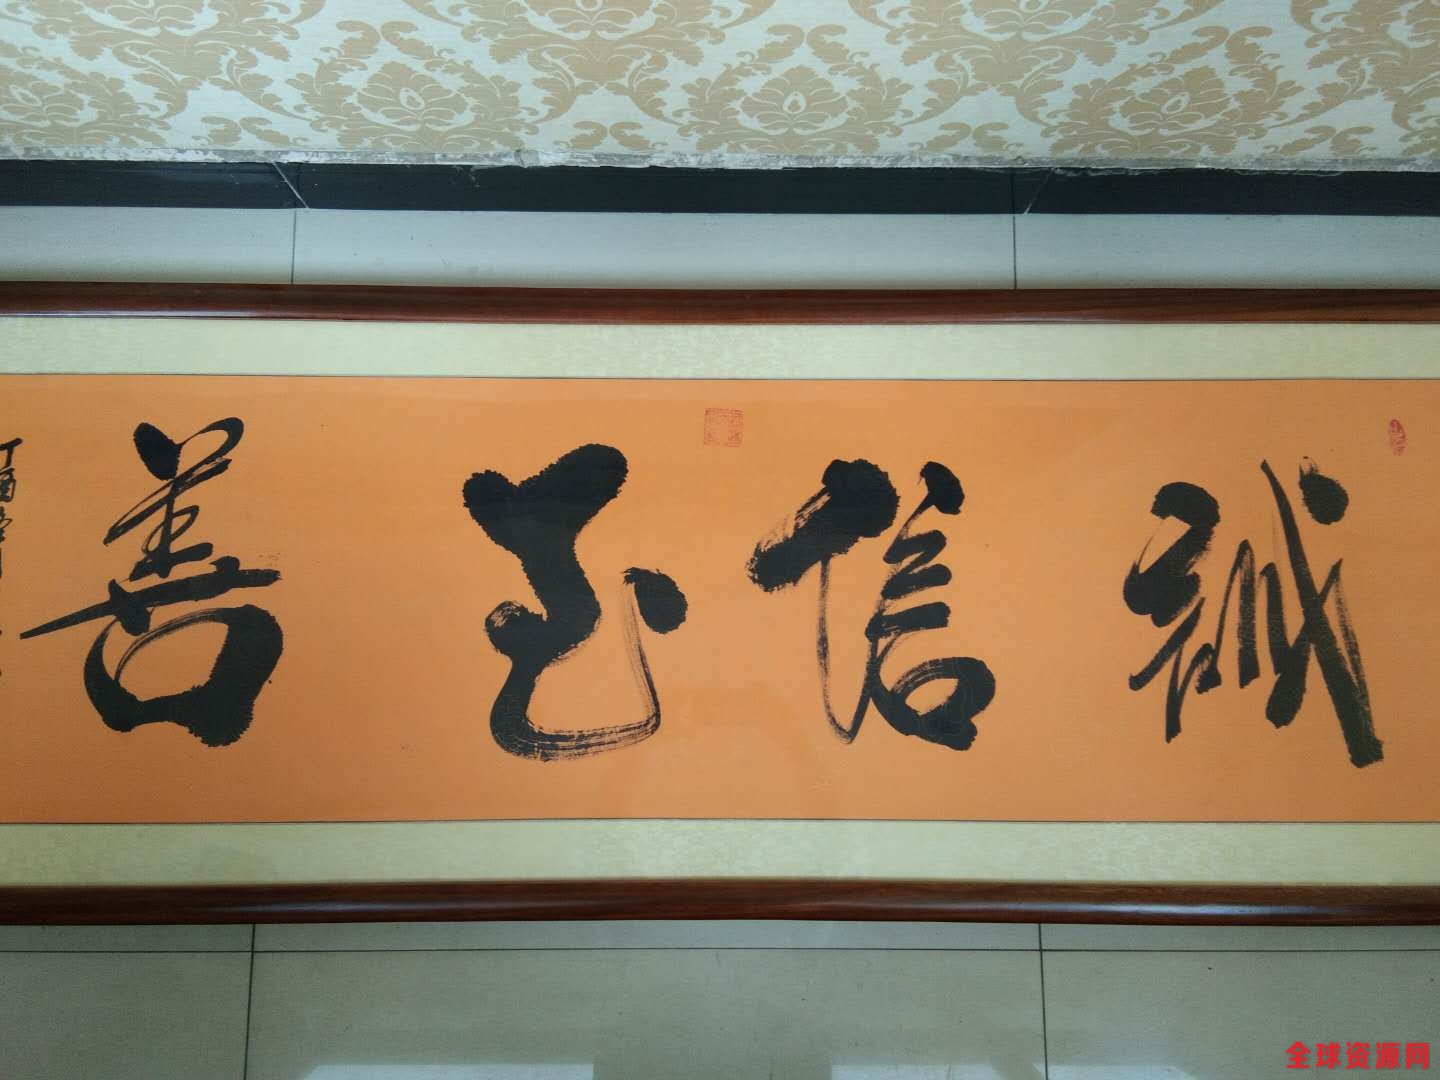 誠信至善
丁酉
全球资源网